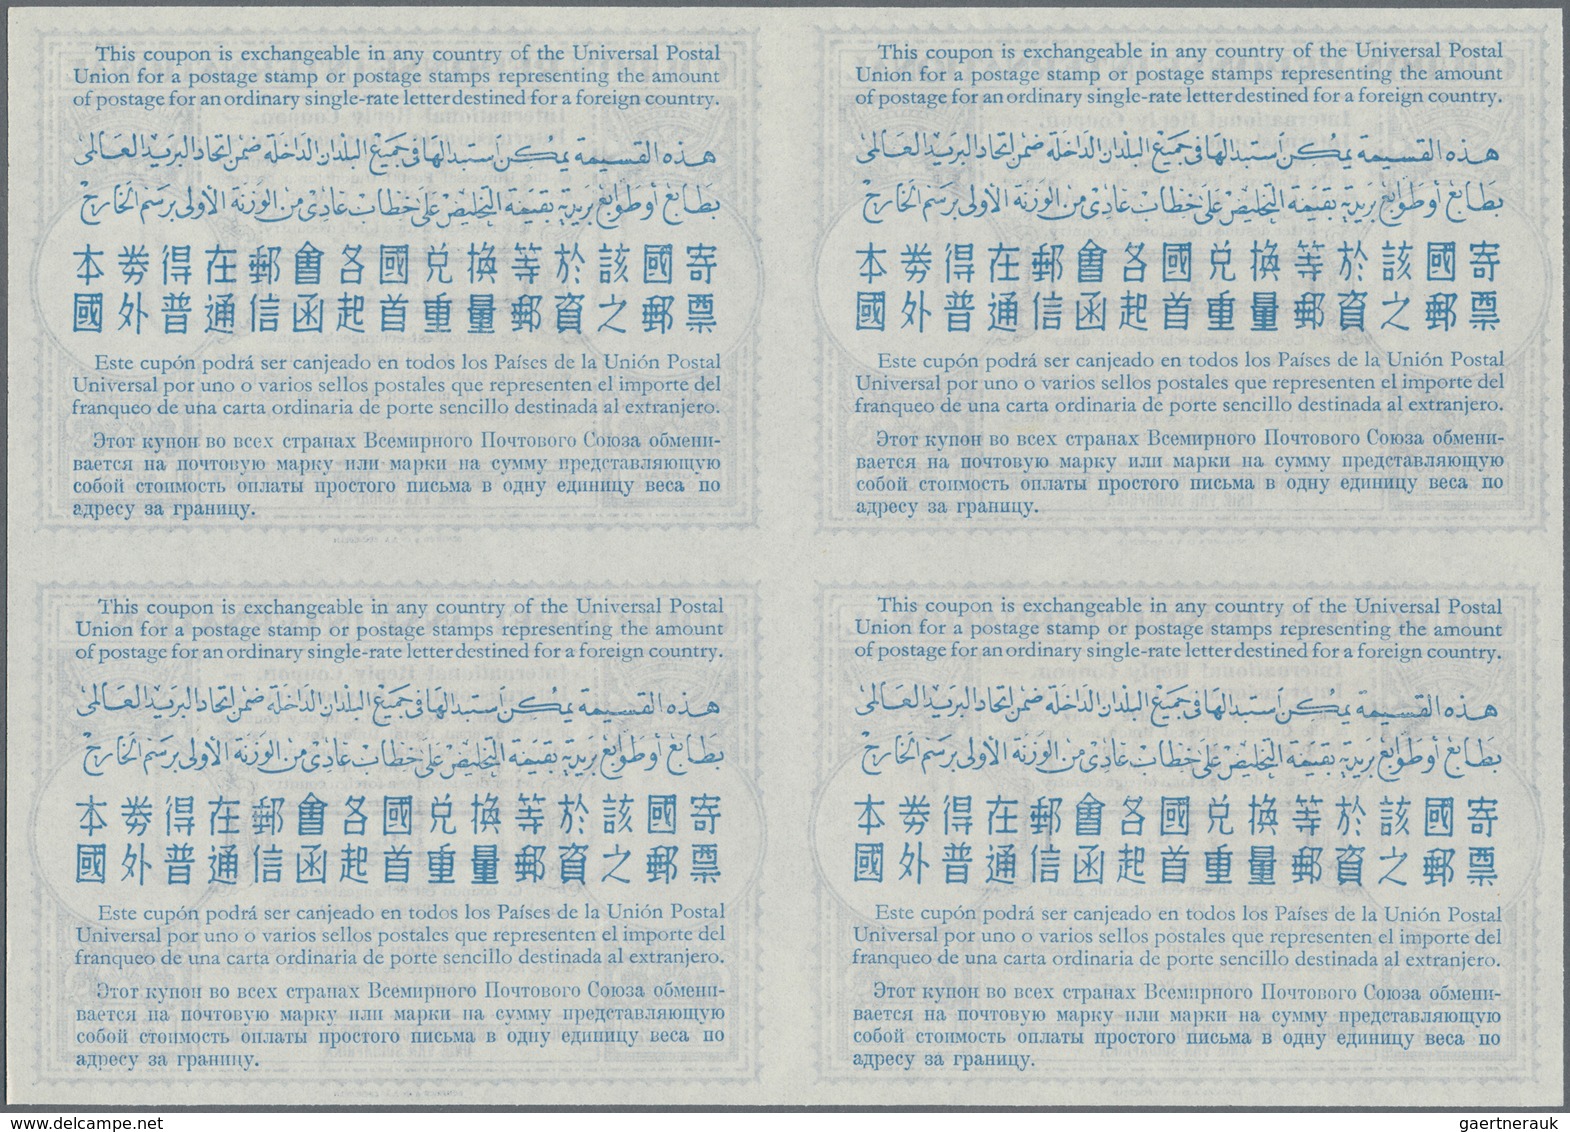 This coupon is exchangeable in any country of the Universal Postal
Union for a postage stamp or postage stamps representing the amount
of postage for an ordinary single-rate letter destined for a foreign country.
هذه القسيمة يمكن استبدالها في جميع البلدان الداخلة ضمن اتحاد البريد العالمى
بطابع أو طوابع بريدية بقيمة التخليص على خطاب عادى من الوزنة الأولى برسم الخارج
本券得在郵會各國兌換等於該國寄
國外普通信函起首重量郵資之郵票
Este cupón podrá ser canjeado en todos los Países de la Unión Postal
Universal por uno o varios sellos postales que representen el importe del
franqueo de una carta ordinaria de porte sencillo destinada al extranjero.
Этот купон во всех странах Всемирного Почтового Союза обмени-
вается на почтовую марку или марки на сумму представляющую
собой стоимость оплаты простого письма в одну единицу веса по
адресу за границу.
This coupon is exchangeable in any country of the Universal Postal
Union for a postage stamp or postage stamps representing the amount
of postage for an ordinary single-rate letter destined for a foreign country.
هذه القسيمة يمكن استبدالها في جميع البلدان الداخلة ضمن اتحاد البريد العالمى
بطابع أو طوابع بريدية بقيمة التخليص على خطاب عادى من الوزنة الأولى برسم الخارج
本券得在郵會各國兌換等於該國寄
國外普通信函起首重量郵資之郵票
Este cupón podrá ser canjeado en todos los Países de la Unión Postal
Universal por uno o varios sellos postales que representen el importe del
franqueo de una carta ordinaria de porte sencillo destinada al extranjero.
Этот купон во всех странах Всемирного Почтового Союза обмени-
вается на почтовую марку или марки на сумму представляющую
собой стоимость оплаты простого письма в одну единицу веса по
адресу за границу.
This coupon is exchangeable in any country of the Universal Postal
Union for a postage stamp or postage stamps representing the amount
of postage for an ordinary single-rate letter destined for a foreign country.
هذه القسيمة يمكن استبدالها في جميع البلدان الداخلة ضمن اتحاد البريد العالمى
بطابع أو طوابع بريدية بقيمة التخليص على خطاب عادى من الوزنة الأولى برسم الخارج
本券得在郵會各國兌換等於該國寄
國外普通信函起首重量郵資之郵票
Este cupón podrá ser canjeado en todos los Países de la Unión Postal
Universal por uno o varios sellos postales que representen el importe del
franqueo de una carta ordinaria de porte sencillo destinada al extranjero.
Этот купон во всех странах Всемирного Почтового Союза обмени-
вается на почтовую марку или марки на сумму представляющую
собой стоимость оплаты простого письма в одну единицу веса по
адресу за границу.
This coupon is exchangeable in any country of the Universal Postal
Union for a postage stamp or postage stamps representing the amount
of postage for an ordinary single-rate letter destined for a foreign country.
هذه القسيمة يمكن استبدالها في جميع البلدان الداخلة ضمن اتحاد البريد العالمى
بطابع أو طوابع بريدية بقيمة التخليص على خطاب عادى من الوزنة الأولى برسم الخارج
本券得在郵會各國兌換等於該國寄
國外普通信函起首重量郵資之郵票
Este cupón podrá ser canjeado en todos los Países de la Unión Postal
Universal por uno o varios sellos postales que representen el importe del
franqueo de una carta ordinaria de porte sencillo destinada al extranjero.
Этот купон во всех странах Всемирного Почтового Союза обмени-
вается на почтовую марку или марки на сумму представляющую
собой стоимость оплаты простого письма в одну единицу веса по
адресу за границу.
delcampe.net
gaertnerauk